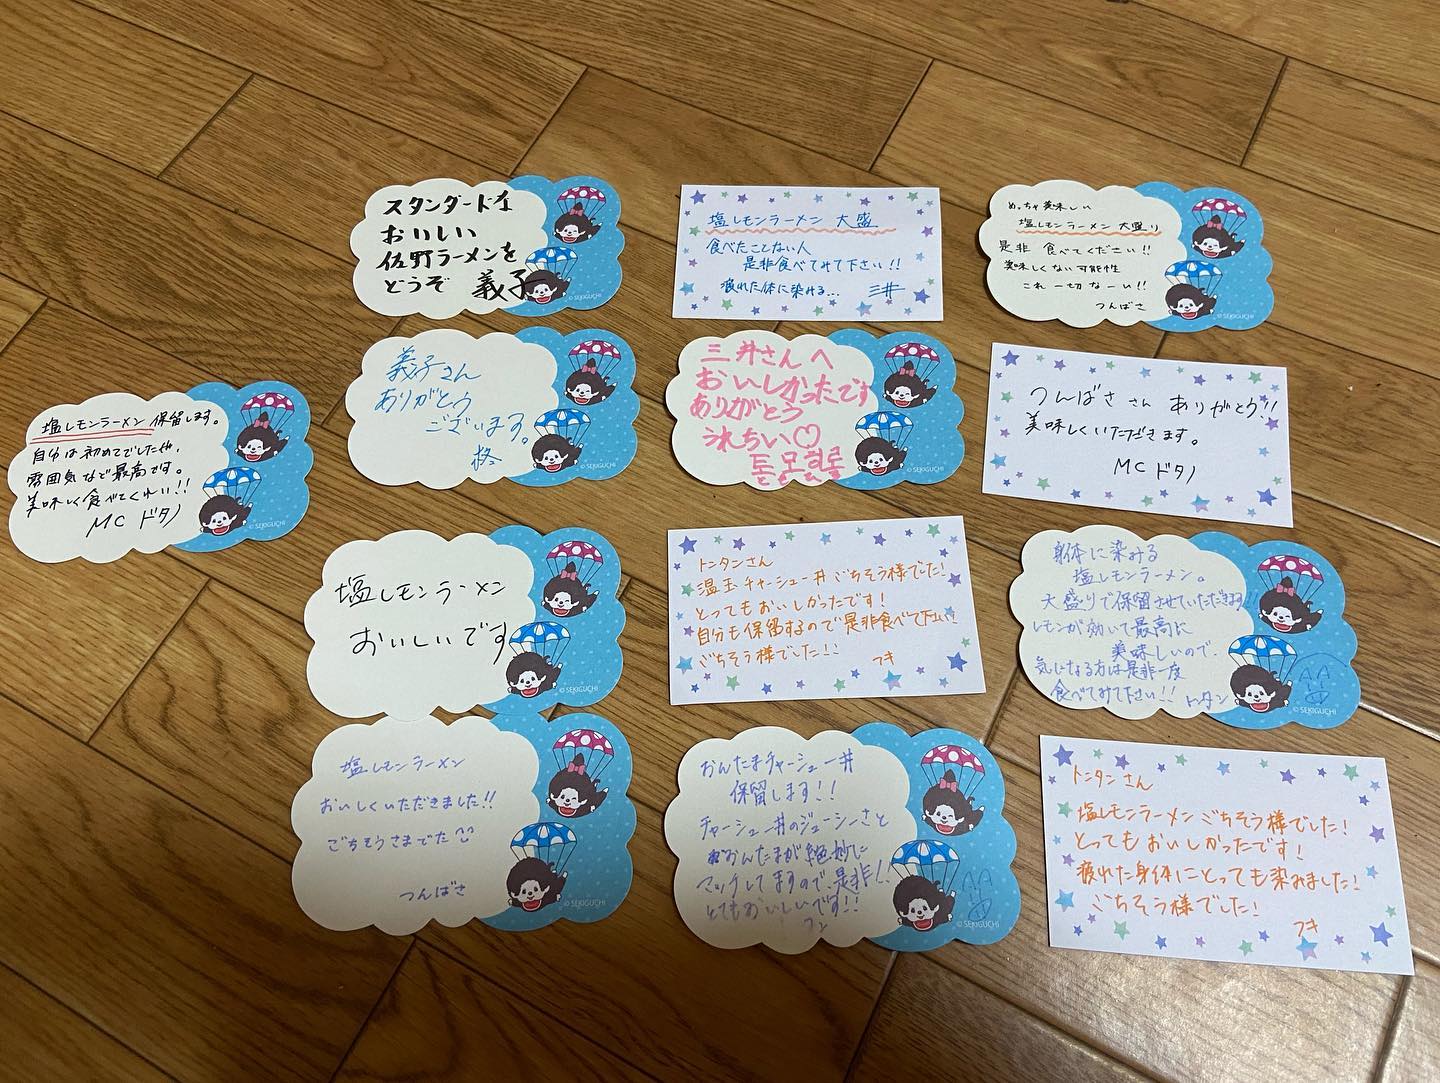 塩レモンラーメン保留します。
自分は初めてでしたが、
雰囲気など最高です。
美味しく食べてくれい!!
MC ドタノ
© SEKIGUCHI
スタンダードな
おいしい
佐野ラーメンを
どうぞ 義子
© SEKIGUCHI
義子さん
ありがとう
ございます。
柊
© SEKIGUCHI
塩レモンラーメン
おいしいです
© SEKIGUCHI
塩レモンラーメン
おいしくいただきました!!
ごちそうさまでた
つんばさ
© SEKIGUCHI
塩レモンラーメン 大盛
食べたことない人
是非食べてみて下さい!!
疲れた体に染みる... 三井
三井さんへ
おいしかったです
ありがとう
うれちい♡
© SEKIGUCHI
トンタンさん
温玉チャーシュー丼ごちそう様でした!
とってもおいしかったです!
自分も保留するので是非食べて下さい!
ごちそう様でした!!
フキ
おんたまチャーシュー丼
保留します!!
チャーシュー丼のジューシーさと
おんたまが絶妙に
マッチしてますので、是非!!
とてもおいしいです!!
© SEKIGUCHI
めっちゃ美味しい
塩レモンラーメン 大盛り
是非 食べてください!!
美味しくない可能性
これ一切なーい!!
つんばさ
© SEKIGUCHI
つんばささん ありがとう!!
美味しくいただきます。
MC ドタノ
身体に染みる
塩レモンラーメン。
大盛りで保留させていただきます!!
レモンが効いて最高に
美味しいので、
気になる方は是非一度
食べてみて下さい!! トンタン
© SEKIGUCHI
トンタンさん
塩レモンラーメンごちそう様でした!
とってもおいしかったです!
疲れた身体にとっても染みました!
ごちそう様でした!
フキ